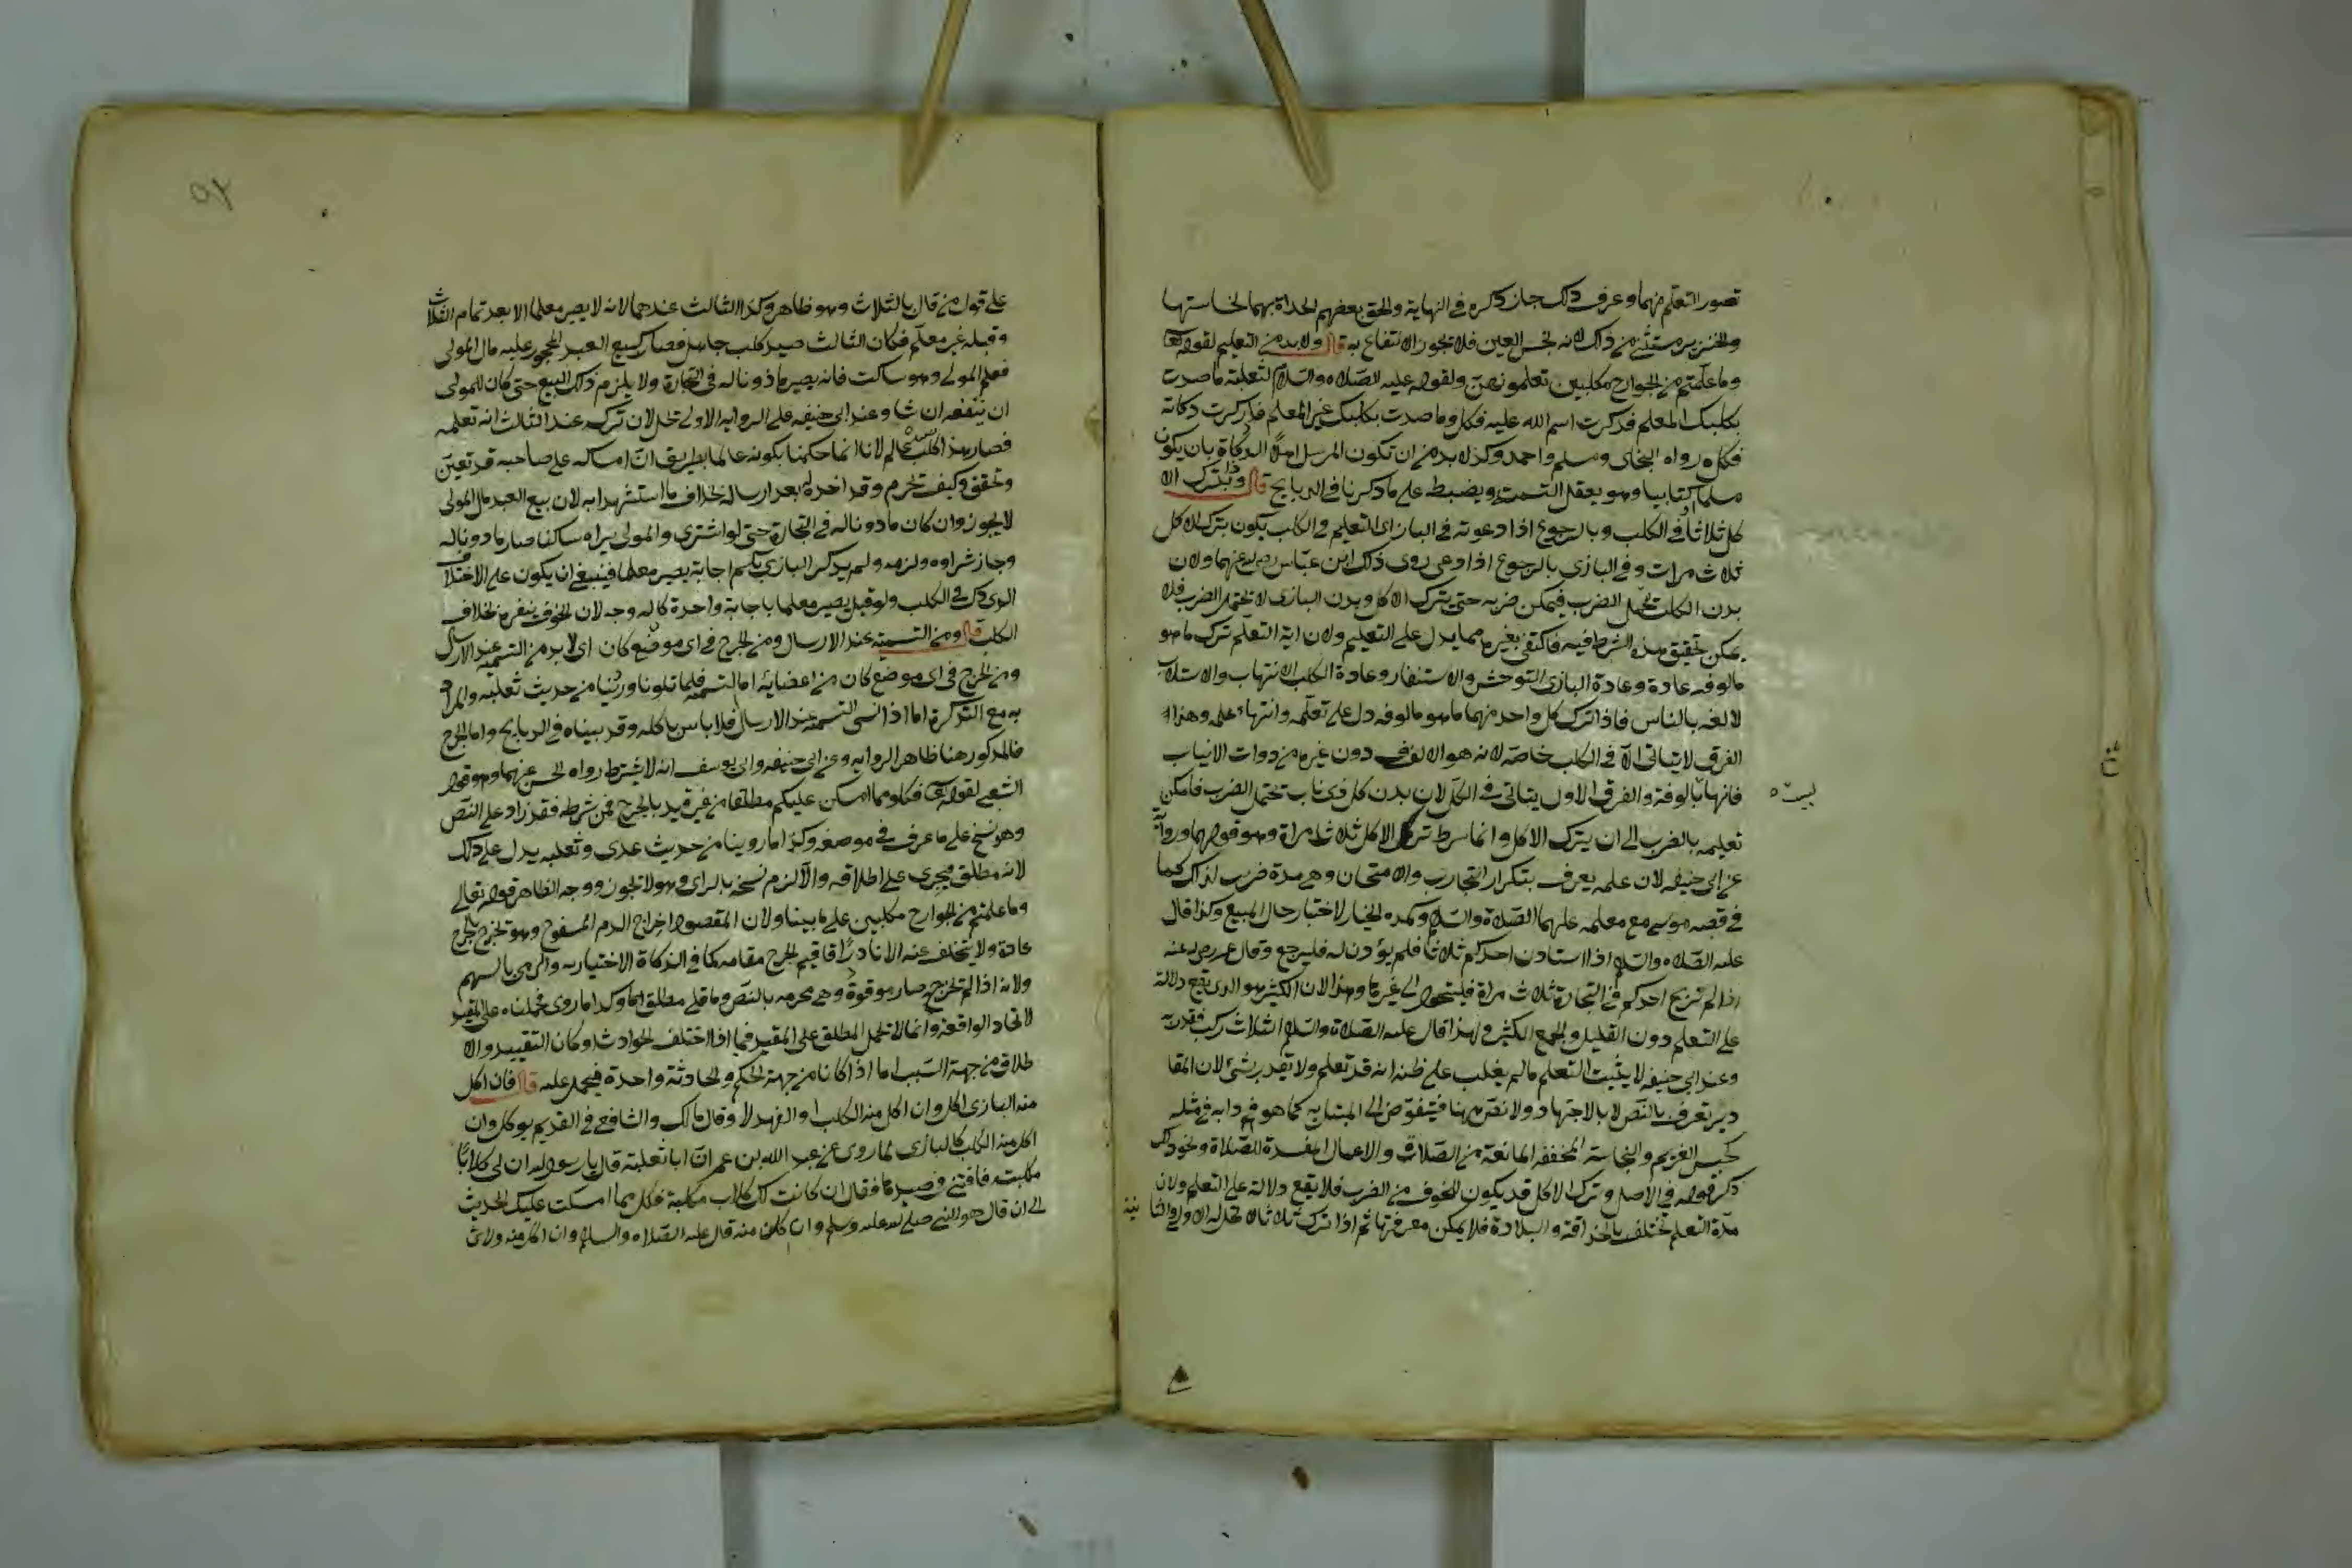 تصور التعلم منهما وعرف ذلك جاز ذكره في النهاية والحق بعضهم الحداة بهما لخاستها
والخنزير مستثنى من ذلك لانه نجس العين فلا يجوز الانتفاع به قال ولابد من التعليم لقوله تعالى
وما علمتم من الجوارح مكلبين تعلمونهن ولقوله عليه الصلاه والسلام لثعلبة ما صدت
بكلبك المعلم فذكرت اسم الله عليه فكل وما صدت بكلبك غير المعلم فادركت ذكاته
فكله رواه البخاى ومسلم واحمد وكذ لابد من ان تكون المرسل اهلا الذكاة بان يكون
مسلما او كتابيا وهو يعقل التسمية ويضبط على ما ذكرنا في الذبايح قال وذا بترك الا
كل ثلاثا في الكلب وبالرجوع اذا دعوته في البازى اى التعليم في الكلب يكون بترك الاكل
ثلاث مرات وفي البازى بالرجوع اذا دعى روى ذلك ابن عباس رضى الله عنهما ولان
بدن الكلب تحمل الضرب فيمكن ضربه حتى يترك الاكل وبدن البازى لا يحتمل الضرب فلا
يمكن تحقيق هذه الشرط فيه فاكتفى بغيره مما يدل على التعليم ولان اية التعلم ترك ما هو
مالوفه عادة وعادة البازى التوحش والاستنفار وعادة الكلب الانتهاب والاستلاب
لالفه بالناس فاذا ترك كل واحد منهما ما هو مالوفه دل على تعلمه وانتهاء علمه وهذا
الفرق لا يتاتى الا في الكلب خاصة لانه هو الالف دون غيره من ذوات الانياب
فانها بالوفة والفرق الاول يتاتى في الكل لان بدن كل ذى ناب تحتمل الضرب فامكن
ليست
تعليمه بالضرب الى ان يترك الاكل وانما شرط ترك الاكل ثلاث مراة وهو قولهما ورواية
عن ابى حنيفه لان علمه يعرف بتكرار التجارب والامتحان وهى مدة ضربت لذلك كما
في قصه موسى مع معلمه عليهما الصلاة والسلام وكمده الخيار لاختبار حال المبيع وكذا قال
عليه الصلاه والسلام اذا استاذن احدكم ثلاثا فلم يؤذن له فليرجع وقال عمر رضى الله عنه
اذا لم تربح احدكم في التجارة ثلاث مراة فليتحول الى غيرها وهذا لان الكثير هو الذى يقع دلالة
على التعلم دون القليل والجمع الكثير ولهذا قال عليه الصلاة والسلام الثلاث ركب فقدره
وعند ابى حنيفه لا يثبت التعلم مالم يغلب على ظنه انه قد تعلم ولا يقدر بشئ لان المقا
دير تعرف بالنص لا بالاجتهاد ولا نص ههنا فيتفوض الى المبتلى به كما هو دابه في مثله
كحبس الغريم والنجاسة المخففه المانعة من الصلاة والاعمال المفسدة للصلاة ونحو ذلك
ذكر قوله في الاصل وترك الاكل قد يكون للخوف من الضرب فلا يقع دلالة على التعلم ولان
مدة التعلم تختلف بالحذاقة والبلادة فلا يمكن معرفتها ثم اذا ترك ثلاثا لا تحل له الاولى والثا
نية
على قول من قال بالثلاث وهو ظاهر وكذا الثالث عندهما لانه لا يصير معلما الا بعد تمام الثلاث
وقبله غير معلم فكان الثالث صيد كلب جاهل فصار كبيع العبد المحجور عليه مال المولى
فعلم المولى وهو ساكت فانه يصير ماذونا له في التجارة ولا يلزم ذلك البيع حتى كان للمولى
ان ينقضه ان شا وعند ابى حنيفه على الروايه الاولى تحل لان تركه عند الثالث انه تعلمه
فصار هذا الكلب عالم لانا انما حكمنا بكونه عالما بطريق ان امساكه على صاحبه قد تعين
وتحقق وكيف تحرم وقد اخذه بعد ارساله بخلاف ما استشهدا به لان بيع العبد مال المولى
لا يجوز وان كان ماذونا له في التجارة حتى لو اشترى والمولى يراه ساكتا صار ماذونا له
وجاز شراوه ولزمه ولم يذكر البازى بكم اجابة يصير معلما فينبغى ان يكون على الاختلاف
الذى ذكر في الكلب ولو قيل يصير معلما باجابة واحدة كان له وجه لان الخوف ينفره بخلاف
الكلب قال ومن التسمية عند الارسال ومن الجرح في اى موضع كان اى لابد من التسمية عند الارسال
ومن الجرح في اى موضع كان من اعضايه اما التسمية فلما تلونا وروينا من حديث ثعلبه والمراد
به مع التذكرة اما اذا نسى التسمية عند الارسال فلا باس باكله وقد بيناه في الذبايح واما الجرح
فالمذكور هنا ظاهر الروايه وعن ابى حنيفه وابى يوسف انه لا يشترط رواه الحسن عنهما وهو قول
الشعبى لقوله تعالى فكلوا مما امسكن عليكم مطلقا من غير قيد بالجرح فمن شرطه فقد زاد على النص
وهو نسخ على ما عرف في موضعه وكذا ما روينا من حديث عدى وثعلبه يدل على ذلك
لانه مطلق فيجرى على اطلاقه والا لزم نسخه بالراى وهو لا تجوز ووجه الظاهر قوله تعالى
وما علمتم من الجوارح مكلبين على ما بينا ولان المقصود اخراج الدم المسفوح وهو تخرج بالجرح
عادة ولا يتخلف عنه الا نادرا فاقيم الجرح مقامه كما في الذكاة الاختياريه والرمى بالسهم
ولانه اذا لم تخرج صار موقوذة وهى محرمه بالنص وما تلى مطلق وكذا ما روى فحملناه على المقيد
لاتحاد الواقعة وانما لا تحمل المطلق على المقيد فيما اذا اختلف الحوادث وكان التقييد والا
طلاق من جهة السبب اما اذا كانا من جهة الحكم والحادثة واحدة فيحمل عليه قال فان اكل
منه البازى اكل وان اكل منه الكلب او الفهد لا وقال مالك والشافعى في القديم يوكل وان
اكل منه الكلب كالبازى لما روى عن عبد الله بن عمر ان ابا ثعلبة قال يا رسول الله ان لى كلابا
مكلبته فافتنى في صيدها فقال ان كانت لك كلاب مكلبة فكل مما امسكت عليك الحديث
الى ان قال هو للنبى صلى الله عليه وسلم وان اكلن منه قال عليه الصلاه والسلام وان اكل منه ولان